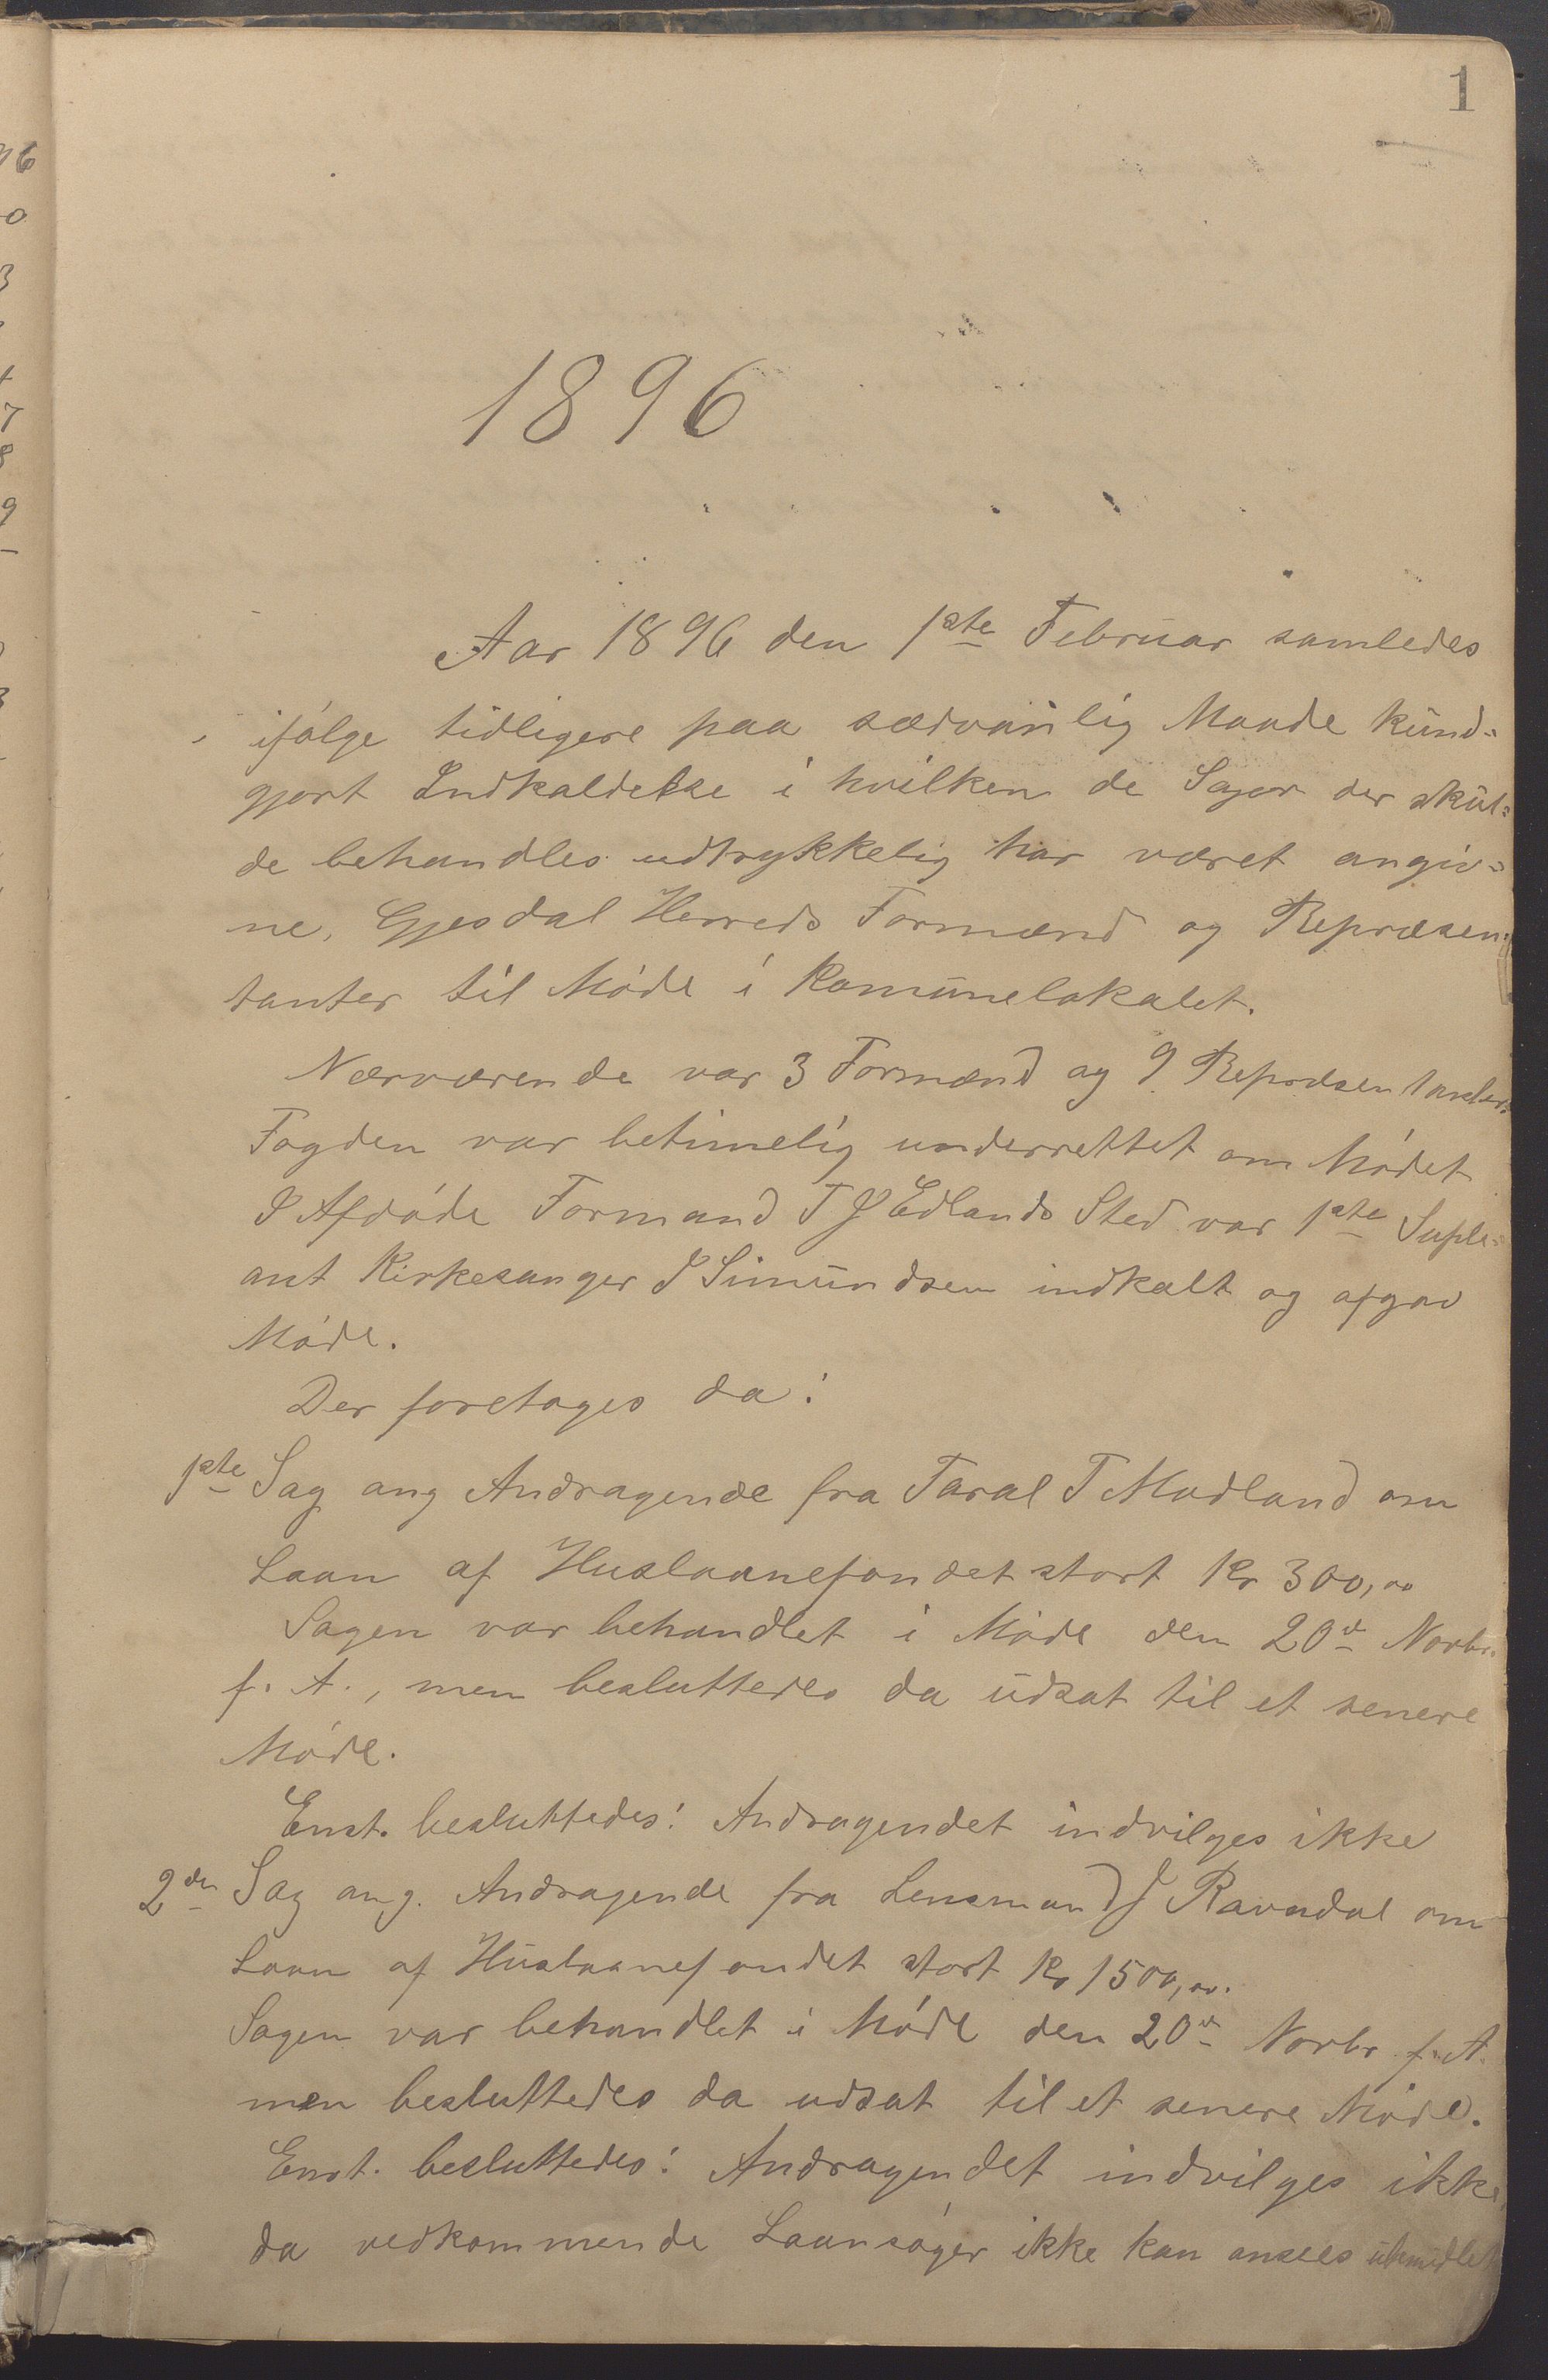 1
1896
Aar 1896 den 1ste Februar samledes
ifølge tidligere paa sædvanlig Maade kund-
gjort Indkaldelse i hvilken de Sager der skul-
de behandles udtrykkelig har været angiv-
ne, Gjesdal Herreds Formænd og Repræsen-
tanter til Møde i Komunelokalet.
Nærværende var 3 Formænd og 9 Repræsentanter.
Fogden var betimelig underrettet om Mødet
I Afdøde Formand T J Edlands Sted var 1ste Suple-
ant Kirkesanger I Simundsen indkalt og afgav
Møde.
Der foretages da:
1ste Sag ang Andragende fra Taral T Madland om
Laan af Huslaanefondet stort Kr 300,00
Sagen var behandlet i Møde den 20de Novbr.
f. A., men besluttedes da udsat til et senere
Møde.
Enst. besluttedes: Andragendet indvilges ikke
2den Sag ang. Andragende fra Lensmand J Ravndal om
Laan af Huslaanefondet stort Kr 1500,00.
Sagen var behandlet i Møde den 20de Novbr f. A.
men besluttedes da udsat til et senere Møde.
Enst. besluttedes: Andragendet indvilges ikke,
da vedkommende Laansøger ikke kan ansees ubemidlet